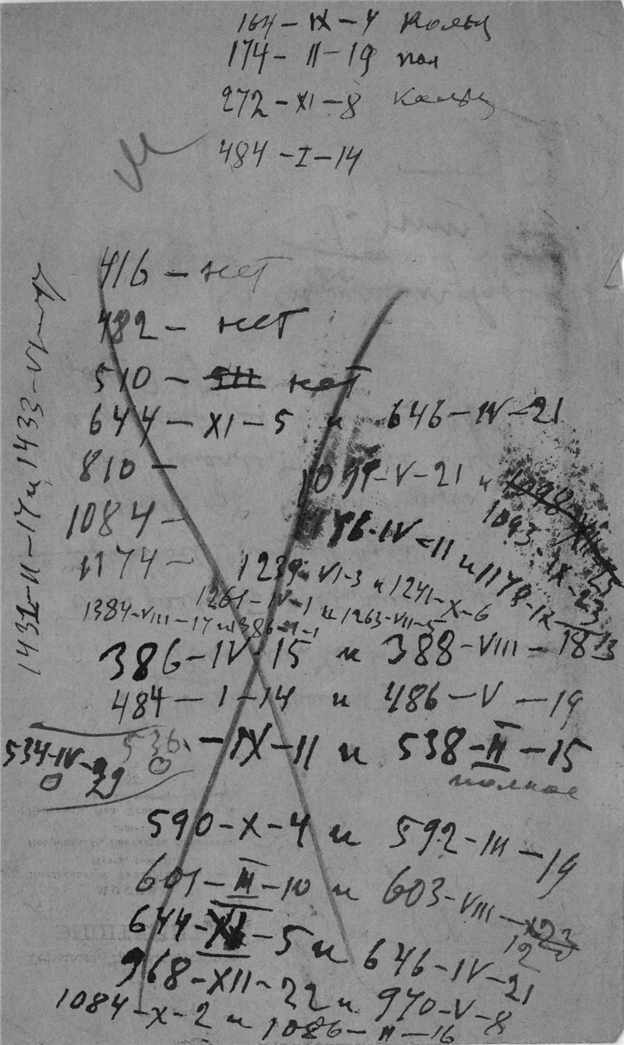 164 – IX – 4 Кольц
174 – II – 19 пол
272 – XI – 8 Кольц
484 – I – 14
416 – нет
482 – нет
510 – нет
644 – XI – 5 и 646 – IV – 21
810 –
1084 –
1174 –
V – 21 и
1093 – IX – 23
IV – 11 и 1178 – 12 – 13
1239 – VI – 3 и 1241 – X – 6
1261 – V – 1 и 1263 – VII – 5
1384 – VIII – 17 и 1386 – I – 1
386 – IV – 15 и 388 – VIII – 18
484 – I – 14 и 486 – V – 19
534 – IV – 29
536 – IX – 11 и 538 – II – 15
полное
590 – X – 4 и 592 – III – 19
601 – III – 10 и 603 – VIII – 12
644 – XI – 5 и 646 – IV – 21
968 – XII – 22 и 970 – V – 8
1084 – X – 2 и 1086 – II – 16
1431 – II – 17 и 1433 – VI